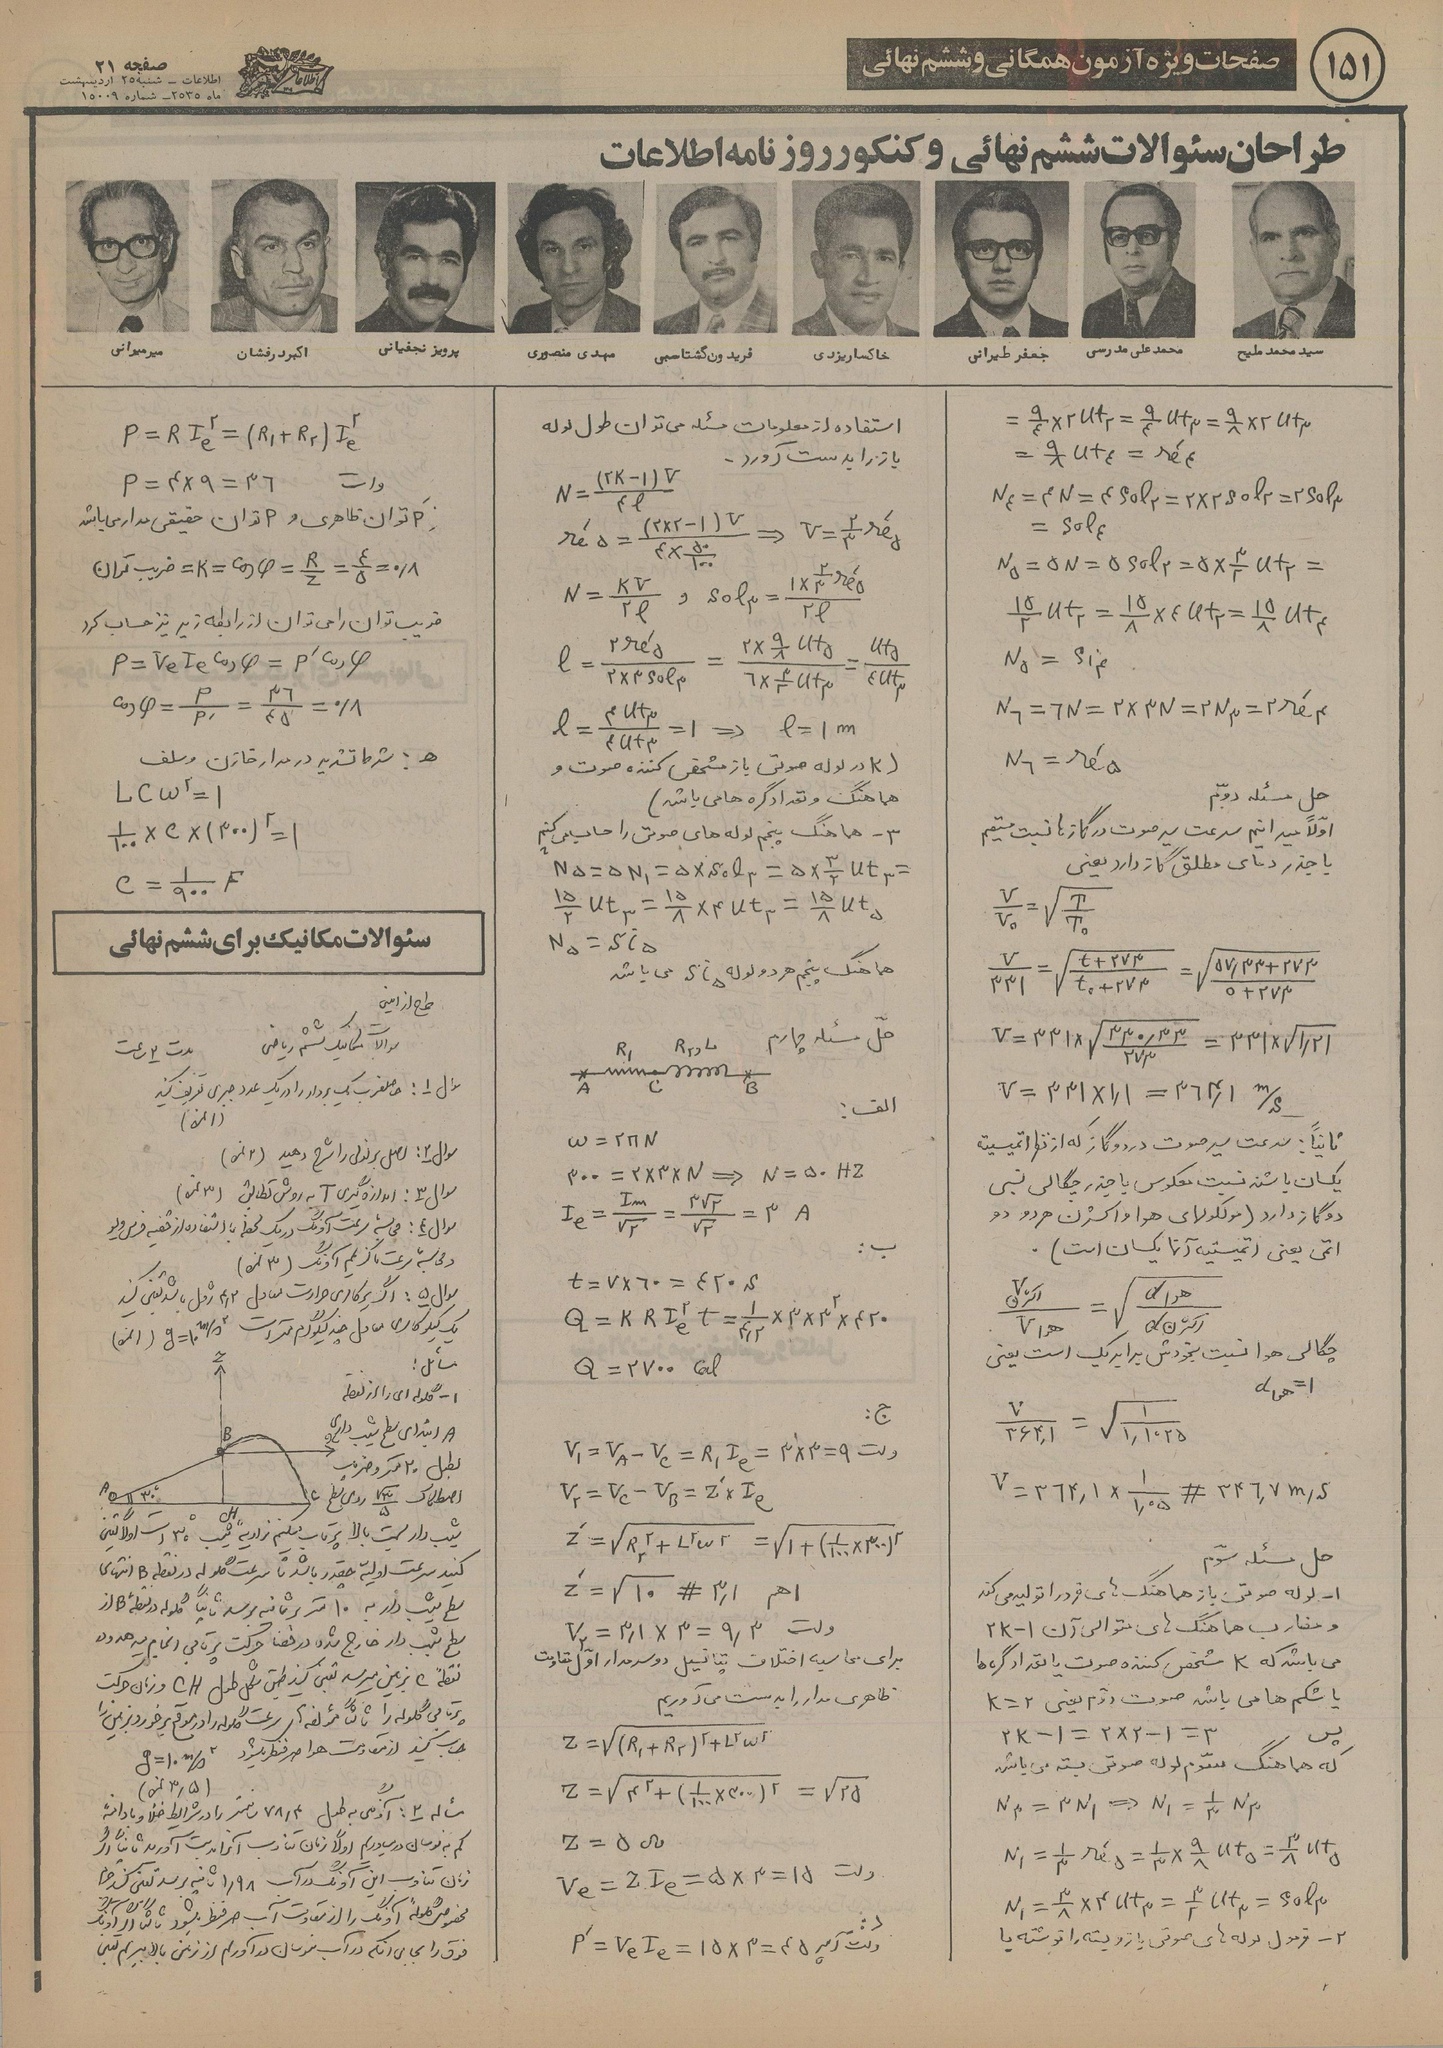 ۱۵۱
صفحات ویژه آزمون همگانی و ششم نهائی
صفحه ۲۱
اطلاعات ـ شنبه ۲۵ اردیبهشت
ماه ۲۵۳۵ـ شماره ۱۵۰۰۹
طراحان سئوالات ششم نهائی و کنکور روزنامه اطلاعات
سید محمد ملیح
محمدعلی مدرسی
جعفر طیرانی
خاکسار یزدی
فریدون گشتاسبی
مهدی منصوری
پرویز نجفیانی
اکبر درفشان
میرمیرانی
= ۹/۴ × ۲ Ut۲ = ۹/۴ Ut۳ = ۹/۸ × ۲ Ut۳
= ۹/۸ Ut۴ = ré۴
N۴ = ۴N = ۴ Sol۲ = ۲×۲ Sol۲ = ۲ Sol۳
= Sol۴
N۵ = ۵N = ۵ Sol۲ = ۵ × ۳/۲ Ut۲ =
۱۵/۲ Ut۲ = ۱۵/۸ × ۴ Ut۲ = ۱۵/۸ Ut۴
N۵ = Si۴
N۶ = ۶N = ۲×۳N = ۲N۳ = ۲ ré۴
N۶ = ré۵
حل مسئله دوم
اولاً میدانیم سرعت سیر صوت در گازها نسبت مستقیم
با جذر دمای مطلق گاز دارد یعنی
V/V۰ = √(T/T۰)
V/۳۳۱ = √((t+۲۷۳)/(t۰+۲۷۳)) = √((۵۷٫۳۳+۲۷۳)/(۰+۲۷۳))
V = ۳۳۱ × √(۳۳۰٫۳۳/۲۷۳) = ۳۳۱ × √۱٫۲۱
V = ۳۳۱ × ۱٫۱ = ۳۶۴٫۱ m/s
ثانیاً: سرعت سیر صوت در دو گاز که از نظر اتمیسیته
یکسان باشند نسبت معکوس با جذر چگالی نسبی
دو گاز دارد (مولکولهای هوا و اکسیژن هر دو دو
اتمی یعنی اتمیسیته آنها یکسان است) .
V اکسیژن/V هوا = √(d هوا/d اکسیژن)
چگالی هوا نسبت بخودش برابر یک است یعنی
d هوا = ۱
V/۳۶۴٫۱ = √(۱/۱٫۱۰۲۵)
V = ۳۶۴٫۱ × ۱/۱٫۰۵ # ۳۴۶٫۷ m/s
حل مسئله سوم
۱ـ لوله صوتی باز هماهنگ های فرد را تولید می کند
و مضارب هماهنگ های متوالی آن ۲K-۱
می باشد که K مشخص کننده صوت یا تعداد گره ها
یا شکم ها می باشد صوت دوم یعنی K=۲
پس ۲K-۱ = ۲×۲-۱ = ۳
که هماهنگ سوم لوله صوتی بسته می باشد
N۳ = ۳N۱ ⟹ N۱ = ۱/۳ N۳
N۱ = ۱/۳ ré۵ = ۱/۳ × ۹/۸ Ut۵ = ۳/۸ Ut۵
N۱ = ۳/۸ × ۴ Ut۳ = ۳/۲ Ut۳ = Sol۳
۲ـ فرمول لوله های صوتی باز و بسته را نوشته با
استفاده از معلومات مسئله می توان طول لوله
باز را بدست آورد.
N = (۲K-۱)V/۴l
ré۵ = (۲×۲-۱)V/(۴×۵۰/۱۰۰) ⟹ V = ۲/۳ ré۵
N = KV/۲l و Sol۳ = (۱×۲/۳ ré۵)/۲l
l = ۲ré۵/(۲×۳Sol۳) = (۲×۹/۸ Ut۵)/(۶×۳/۲ Ut۳) = Ut۵/۴Ut۳
l = ۴Ut۳/۴Ut۳ = ۱ ⟹ l = ۱ m
(K در لوله صوتی باز مشخص کننده صوت و
هماهنگ و تعداد گره ها می باشد)
۳ـ هماهنگ پنجم لوله های صوتی را حساب می کنیم
N۵ = ۵N۱ = ۵×Sol۳ = ۵ × ۳/۲ Ut۳ =
۱۵/۲ Ut۳ = ۱۵/۸ × ۴ Ut۳ = ۱۵/۸ Ut۵
N۵ = Si۵
هماهنگ پنجم هر دو لوله Si۵ می باشد
حل مسئله چهارم
R۱ R۲ و L
A C B
الف:
ω = ۲πN
۳۰۰ = ۲×۳×N ⟹ N = ۵۰ HZ
Ie = Im/√۲ = ۳√۲/√۲ = ۳ A
ب:
t = ۷×۶۰ = ۴۲۰ s
Q = K R Ie² t = ۱/۴٫۲ × ۳ × ۳² × ۴۲۰
Q = ۲۷۰۰ Cal
ج:
V۱ = VA - VC = R۱ Ie = ۳×۳ = ۹ ولت
V۲ = VC - VB = Z' × Ie
Z' = √(R۲² + L²ω²) = √(۱ + (۱/۱۰۰ × ۳۰۰)²)
Z' = √۱۰ # ۳٫۱ اهم
V۲ = ۳٫۱ × ۳ = ۹٫۳ ولت
برای محاسبه اختلاف پتانسیل دو سر مدار اول مقاومت
ظاهری مدار را بدست می آوریم
Z = √((R۱+R۲)² + L²ω²)
Z = √(۴² + (۱/۱۰۰ × ۳۰۰)²) = √۲۵
Z = ۵ Ω
Ve = Z Ie = ۵×۳ = ۱۵ ولت
P' = Ve Ie = ۱۵×۳ = ۴۵ ولت آمپر
P = R Ie² = (R۱+R۲) Ie²
P = ۴×۹ = ۳۶ وات
P' توان ظاهری و P توان حقیقی مدار می باشد
ضریب توان = K = cosφ = R/Z = ۴/۵ = ۰٫۸
ضریب توان را می توان از رابطه زیر نیز حساب کرد
P = Ve Ie cosφ = P' cosφ
cosφ = P/P' = ۳۶/۴۵ = ۰٫۸
ه: شرط تشدید در مدار خازن و سلف
LCω² = ۱
۱/۱۰۰ × C × (۳۰۰)² = ۱
C = ۱/۹۰۰ F
سئوالات مکانیک برای ششم نهائی
سوالات مکانیک ششم ریاضی مدت ۲ ساعت
سوال ۱: حاصلضرب یک بردار را در یک عدد جبری تعریف کنید
(۱ نمره)
سوال ۲: اصل برنولی را شرح دهید (۲ نمره)
سوال ۳: اندازه گیری T به روش تطابق (۳ نمره)
سوال ۴: محاسبه سرعت آونگ در یک لحظه با استفاده از قضیه فرس ویو
و محاسبه سرعت ماکزیمم آونگ (۳ نمره)
سوال ۵: اگر یک کالری حرارت معادل ۴٫۲ ژول باشد تعیین کنید
یک کیلوکالری معادل چند کیلوگرم متر است g=۱۰ m/s² (۱ نمره)
مسائل:
۱ـ گلوله ای را از نقطه
A ابتدای سطح شیب داری
بطول ۲۰ متر و ضریب
اصطکاک √۳/۵ روی سطح
Z B A ۳۰° H C
شیب دار بسمت بالا پرتاب میکنیم زاویه شیب ۳۰° است اولاً تعیین
کنید سرعت اولیه چقدر باشد تا سرعت گلوله در نقطه B انتهای
سطح شیب دار به ۱۰ متر بر ثانیه برسد ثانیاً گلوله در نقطه B از
سطح شیب دار خارج شده در فضا حرکت پرتابی انجام میدهد و در
نقطه C بزمین میرسد تعیین کنید طبق شکل طول CH و زمان حرکت
پرتابی گلوله را ثالثاً مؤلفه های سرعت گلوله را در موقع برخورد بزمین را
حساب کنید از مقاومت هوا صرفنظر میشود g=۱۰ m/s²
(۳٫۵ نمره)